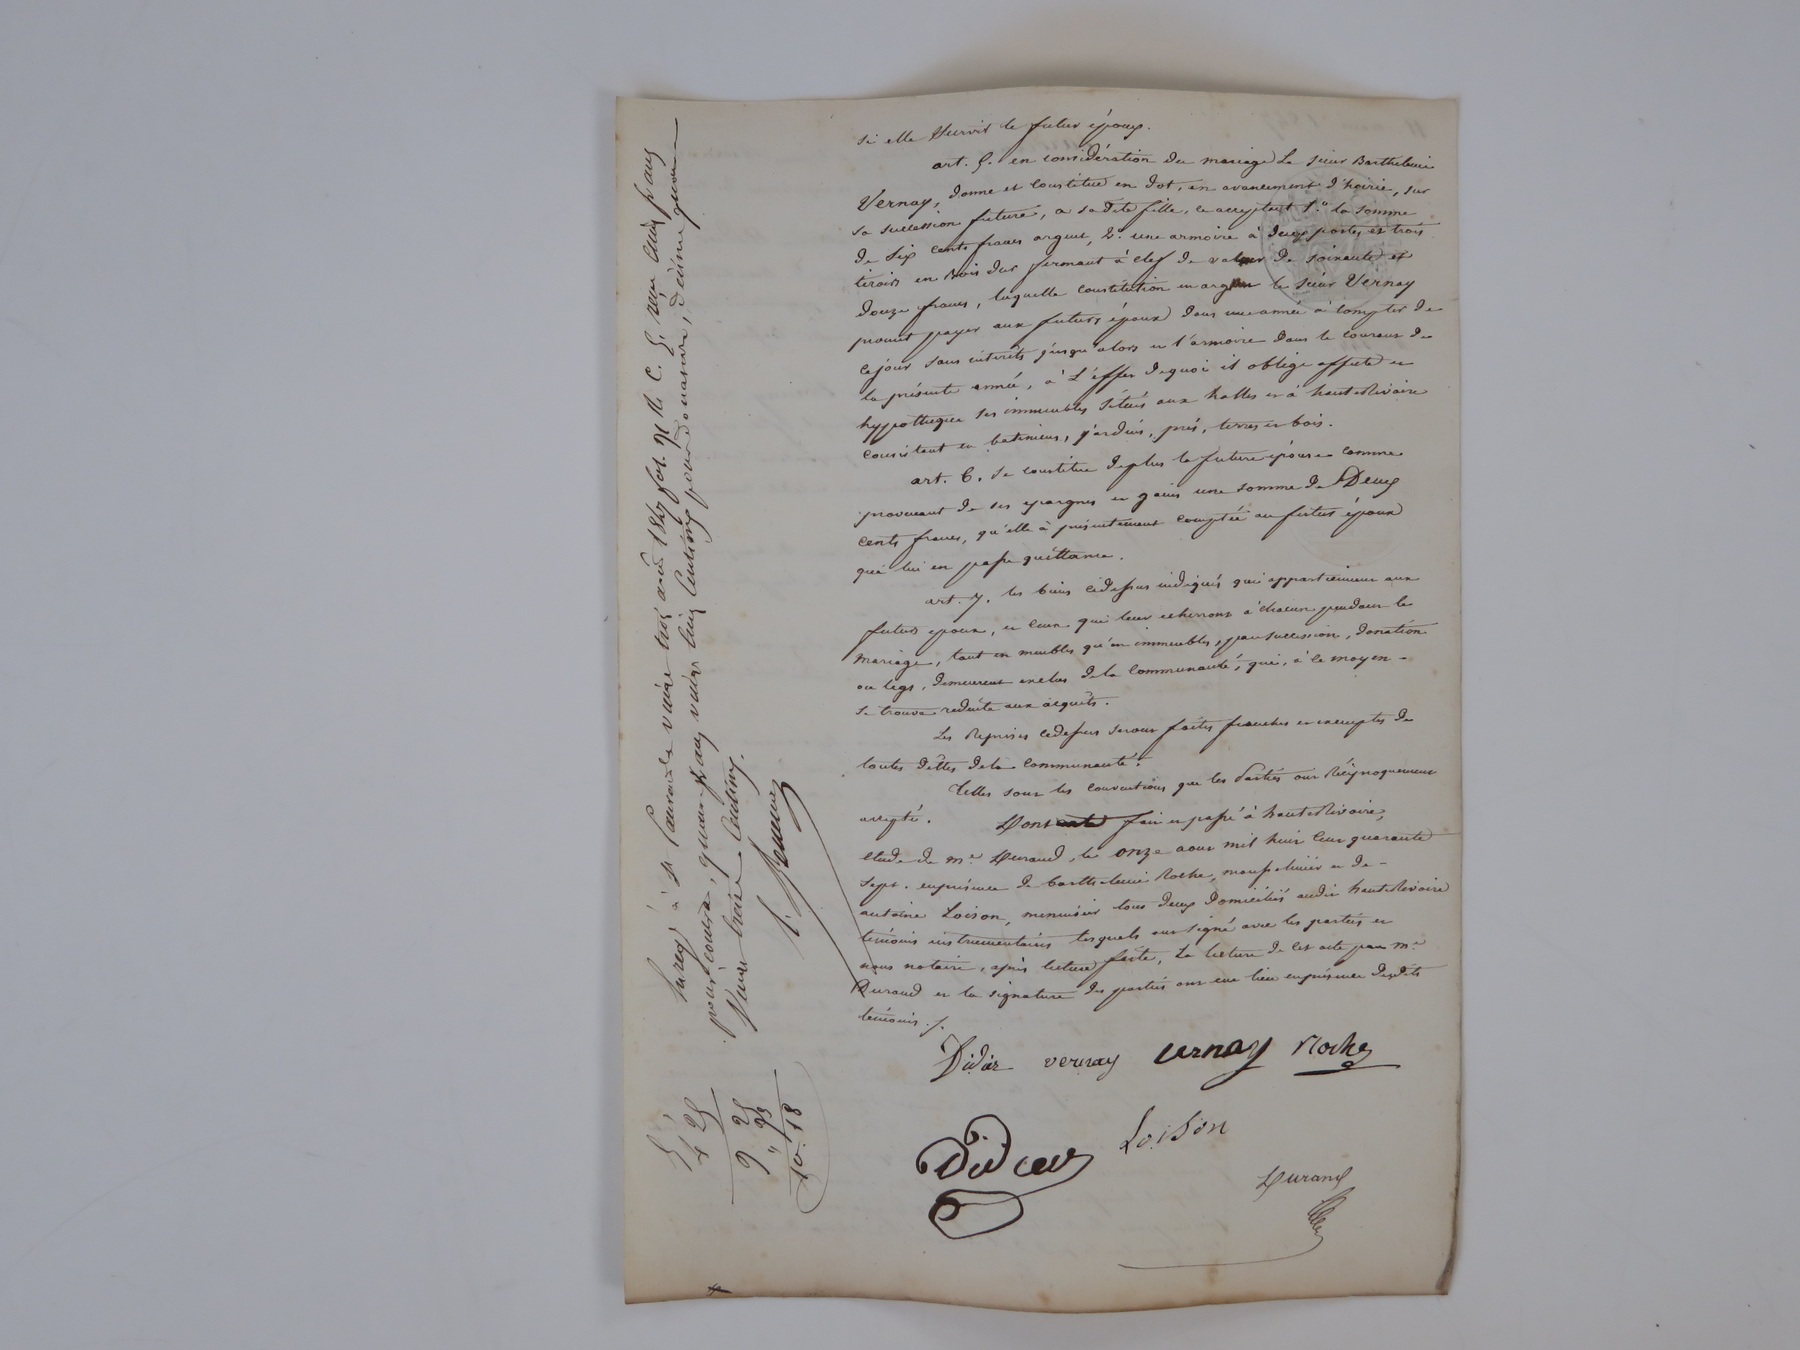 si elle Survit le futur époux.
art. 5. en considération du mariage le sieur Barthelemi
Vernay, donne et Constitue en dot, en avancement d'hoirie, sur
sa succession future, a sa dite fille, ce acceptant 1.º la somme
de Six cents francs argent, 2.º une armoire à deux portes et trois
tiroirs en bois dur fermant à clef de valeur de soixante et
douze francs, laquelle constitution en argent le sieur Vernay
promet payer aux futurs époux dans une année à compter de
ce jour sans intérêts jusqu'alors et l'armoire dans le courant de
la présente année, à L'effet de quoi il oblige affecte et
hyppotheque ses immeubles Situés aux halles et à haute Rivoire
consistant en batiments, jardins, prés, terres et bois.
art. 6. Se constitue de plus la future épouse comme
provenant de ses epargnes et gains une somme de Deux
cents francs, qu'elle à présentement comptée au futur époux
qui lui en passe quittance.
art. 7. les biens cidessus indiqués qui appartiennent aux
futurs epoux, et ceux qui leur echerront à chacun pendant le
mariage, tant en meubles qu'en immeubles, par succession, donation
ou legs, demeurent exclus de la Communauté, qui, à ce moyen -
se trouve reduite aux acquêts.
Les Reprises cidessus seront faites franches et exemptes de
toutes dettes de la Communauté.
Telles sont les conventions que les Parties ont Réciproquement
accepté. Dont acte fait et passé à haute Rivoire,
etude de me Durand, le onze aout mil huit cent quarante
sept. en présence de barthelemi Roche, et de -
antoine Loison, menuisier tous deux domiciliés audit haute Rivoire
temoins instrumentaires lesquels ont signé avec les parties et
nous notaire, après lecture faite, La lecture de cet acte par me
Durand et la signature des parties ont eue lieu en présence desdits
temoins ./.
Didier vernay vernay Roche
Didier Loison
Durand
Enreg à St Laurent le vingt trois août 1847 fol. 71 R. C. 5. reçu cinq francs
pour , quatre francs vingt cinq Centimes pour donation, décime quatre
vingt treize Centimes.
5
4 25
9 25
" 93
10.18